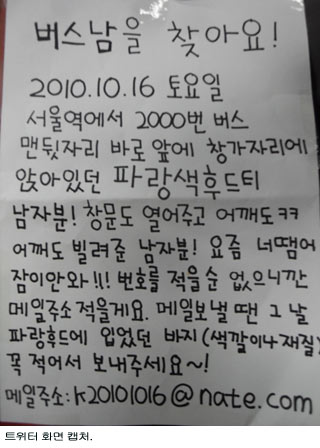 버스남을 찾아요!
2010.10.16 토요일
서울역에서 2000번 버스
맨뒷자리 바로 앞에 창가자리에
앉아있던 파랑색후드티
남자분! 창문도 열어주고 어깨도ㅋㅋ
어깨도 빌려준 남자분! 요즘 너땜어
잠이안와!!! 번호를 적을순 없으니깐
메일주소 적을게요. 메일보낼 땐 그 날
파랑후드에 입었던 바지(색깔이나재질)
꼭 적어서 보내주세요~!
메일주소:k20101016@nate.com
트위터 화면 캡처.